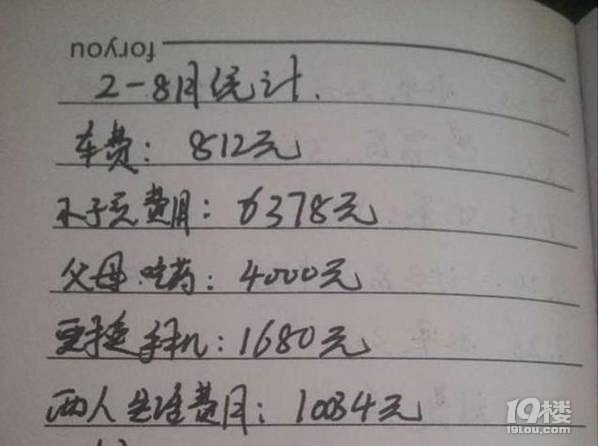 foryou
2-8月统计.
车费: 812元
费用: 6378元
父母.吃药: 4000元
更换手机: 1680元
两人 费用: 10034元
19楼
19lou.com